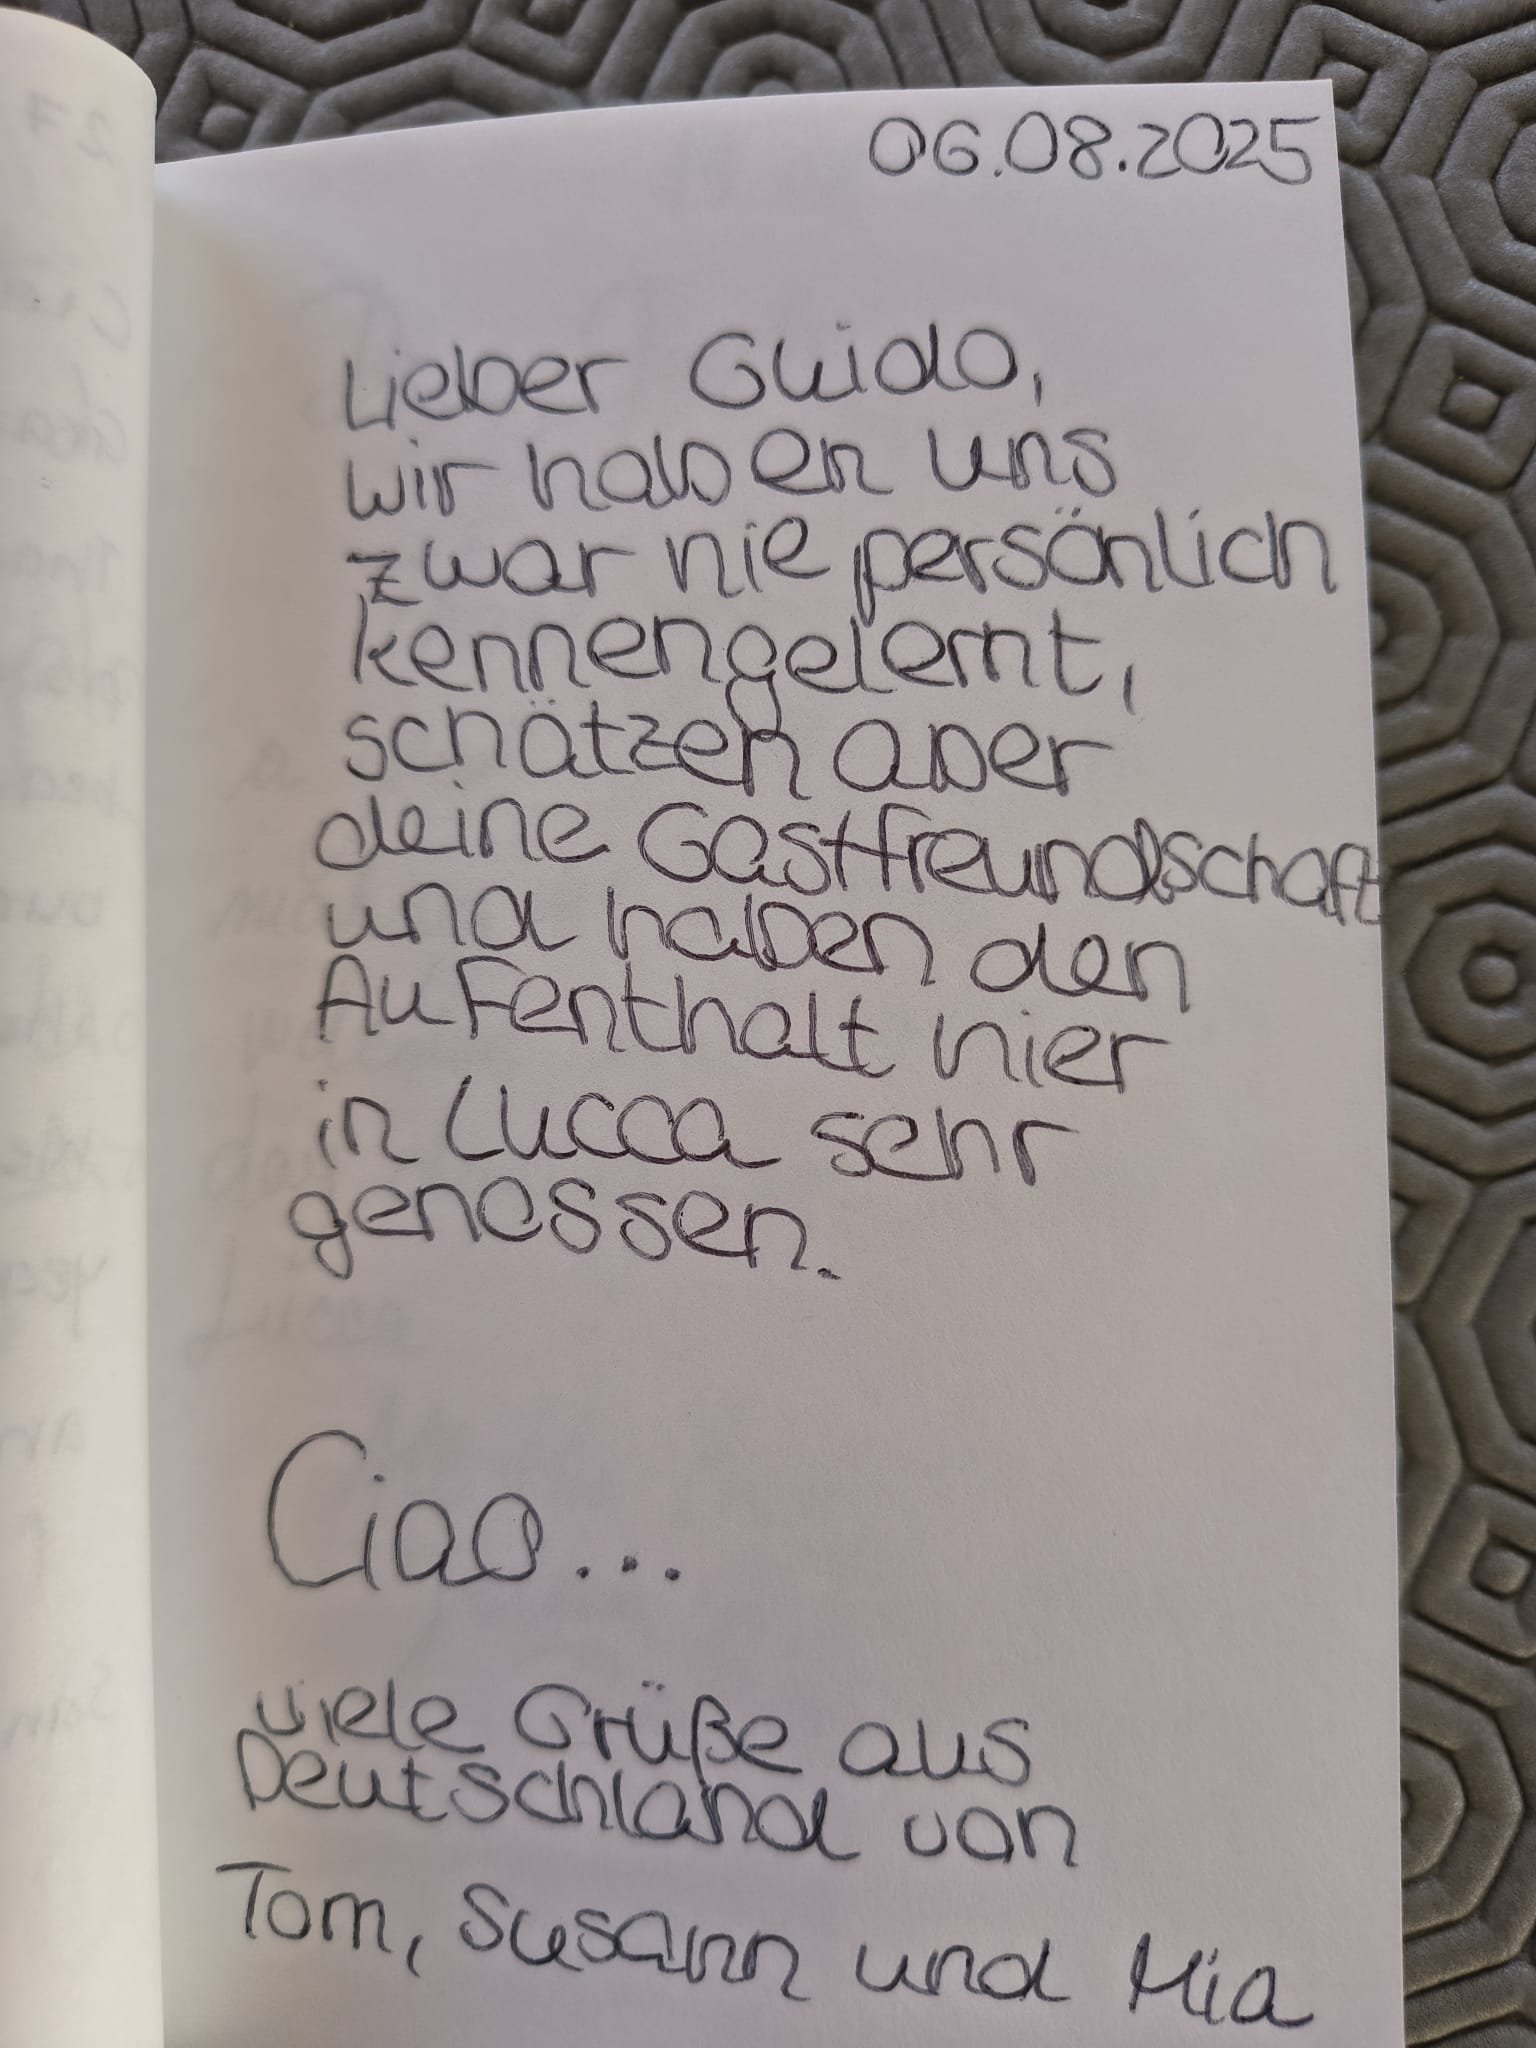 06.08.2025
Lieber Guido,
wir haben uns
zwar nie persönlich
kennengelernt,
schätzen aber
deine Gastfreundschaft
und haben den
Aufenthalt hier
in Lucca sehr
genossen.
Ciao...
viele Grüße aus
Deutschland von
Tom, Susann und Mia